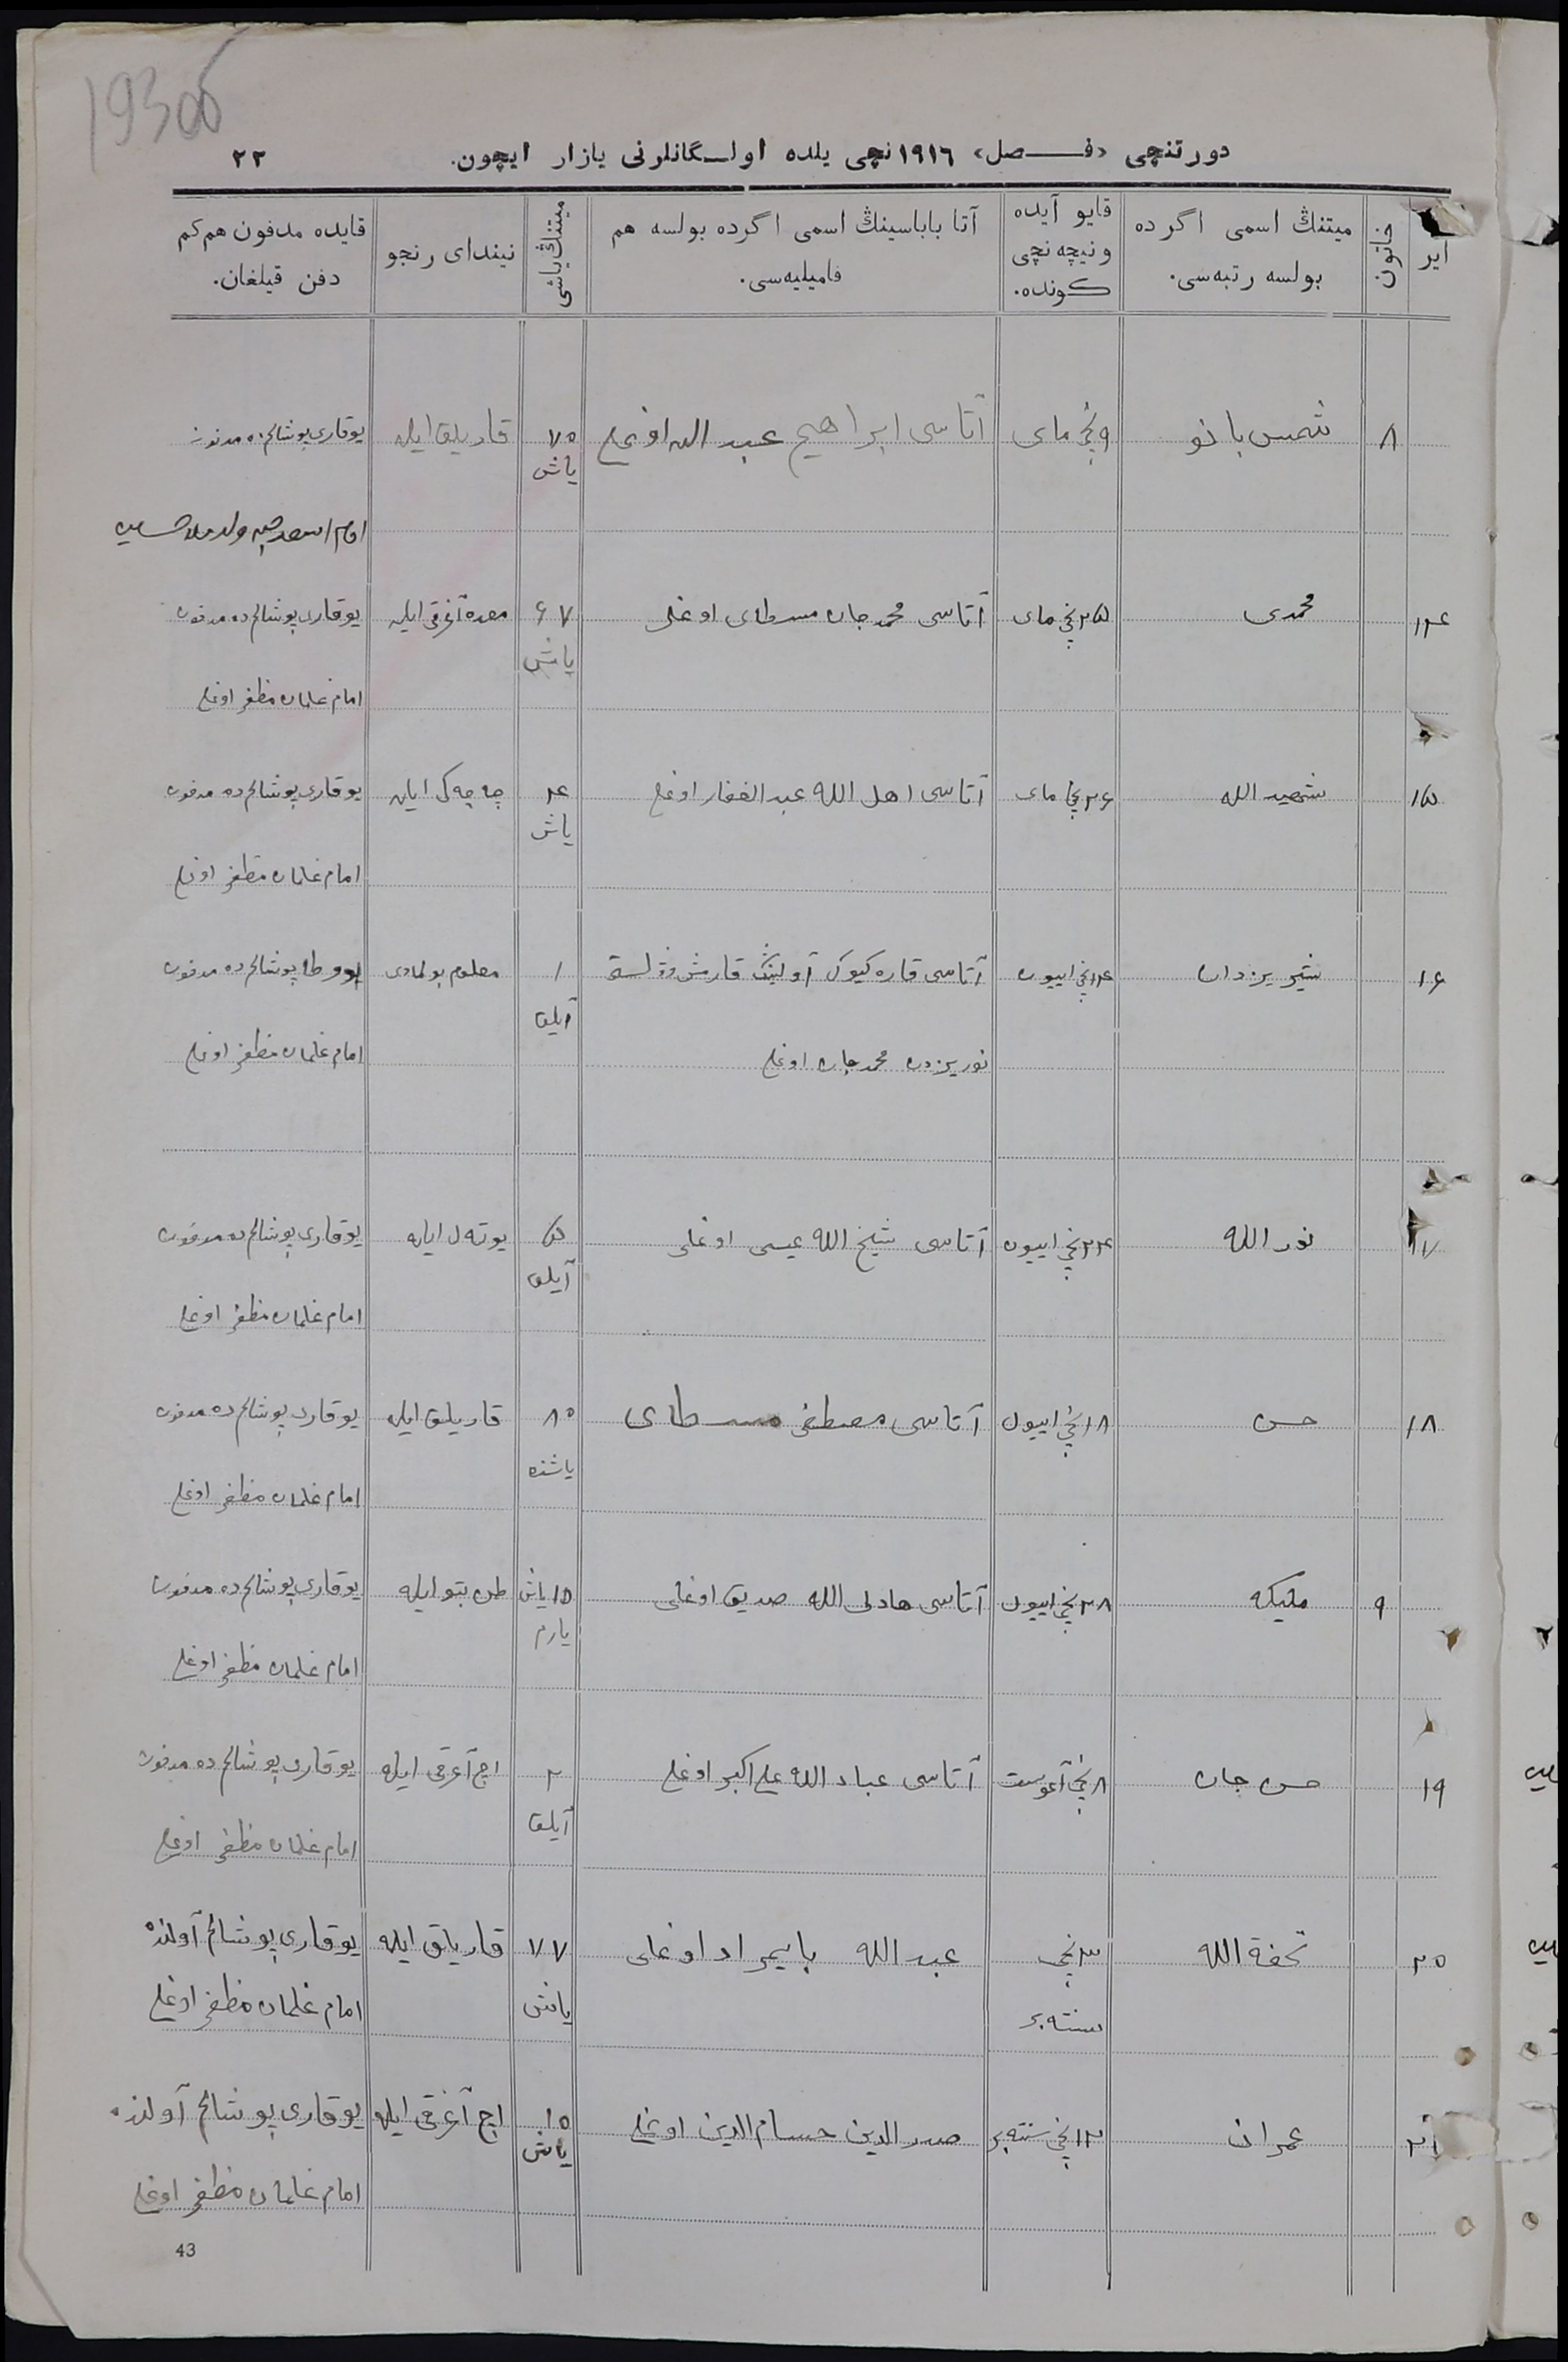 1930 об
دورتنچی «فـــصل» ١٩١٦نچی یلده اولــگانلرنی یازار ایچون. ٢٢
ایر
خاتون
میتنڭ اسمی اگرده بولسه رتبه‌سی.
قایو آیده ونیچه نچی کونده.
آتا باباسینڭ اسمی اگرده بولسه هم فامیلیه‌سی.
میتنڭ یاشی
نیندای رنجو
قایده مدفون هم کم دفن قیلغان.
٨ شمس بانو ٩نچی مای آتاسی ابراهیم عبد الله اوغلی ٧٥ یاش قاریلق ایله یوقاری پوشالمده مدفون
امام
١٤ محمدی ٢٥نچی مای آتاسی محمد جان مسطای اوغلی ٦٧ یاش معده آغرقی ایله یوقاری پوشالم ده مدفون
امام غلمان مظفر اوغلی
١٥ شهید الله ٢٦نچی مای آتاسی اهل الله عبد الغفار اوغلی ٤ یاش چه چه ک ایله یوقاری پوشالم ده مدفون
امام غلمان مظفر اوغلی
١٦ شیریزدان ١٤نچی اییون آتاسی قاره کیوک آولینڭ ١ آیلق معلوم بولمادی پوشالم ده مدفون
نوریزدن محمد جان اوغلی امام غلمان مظفر اوغلی
١٧ نور الله ٢٤نچی اییون آتاسی شیخ الله عیسی اوغلی ٥ آیلق یوته ل ایله یوقاری پوشالم ده مدفون
امام غلمان مظفر اوغلی
١٨ حسن ١٨نچی اییول آتاسی مصطفی مسطای ٨٠ یاشنده قاریلق ایله یوقاری پوشالم ده مدفون
امام غلمان مظفر اوغلی
٩ ملیکه ٢٨نچی اییول آتاسی هادی الله صدیق اوغلی ١٥ یاش یارم طن بتو ایله یوقاری پوشالم ده مدفون
امام غلمان مظفر اوغلی
١٩ حسن جان ٨نچی آغوست آتاسی عباد الله علی اکبر اوغلی ٢ آیلق اچ آغرقی ایله یوقاری پوشالم ده مدفون
امام غلمان مظفر اوغلی
٢٠ تحفة الله ٣نچی سنته بر عبد الله بایمراد اوغلی ٧٧ یاش قاریلق ایله یوقاری پوشالم آولنده
امام غلمان مظفر اوغلی
٢١ عمران ١٢نچی سنته بر صدر الدین حسام الدین اوغلی ١٥ یاش اچ آغرقی ایله یوقاری پوشالم آولنده
امام غلمان مظفر اوغلی
43